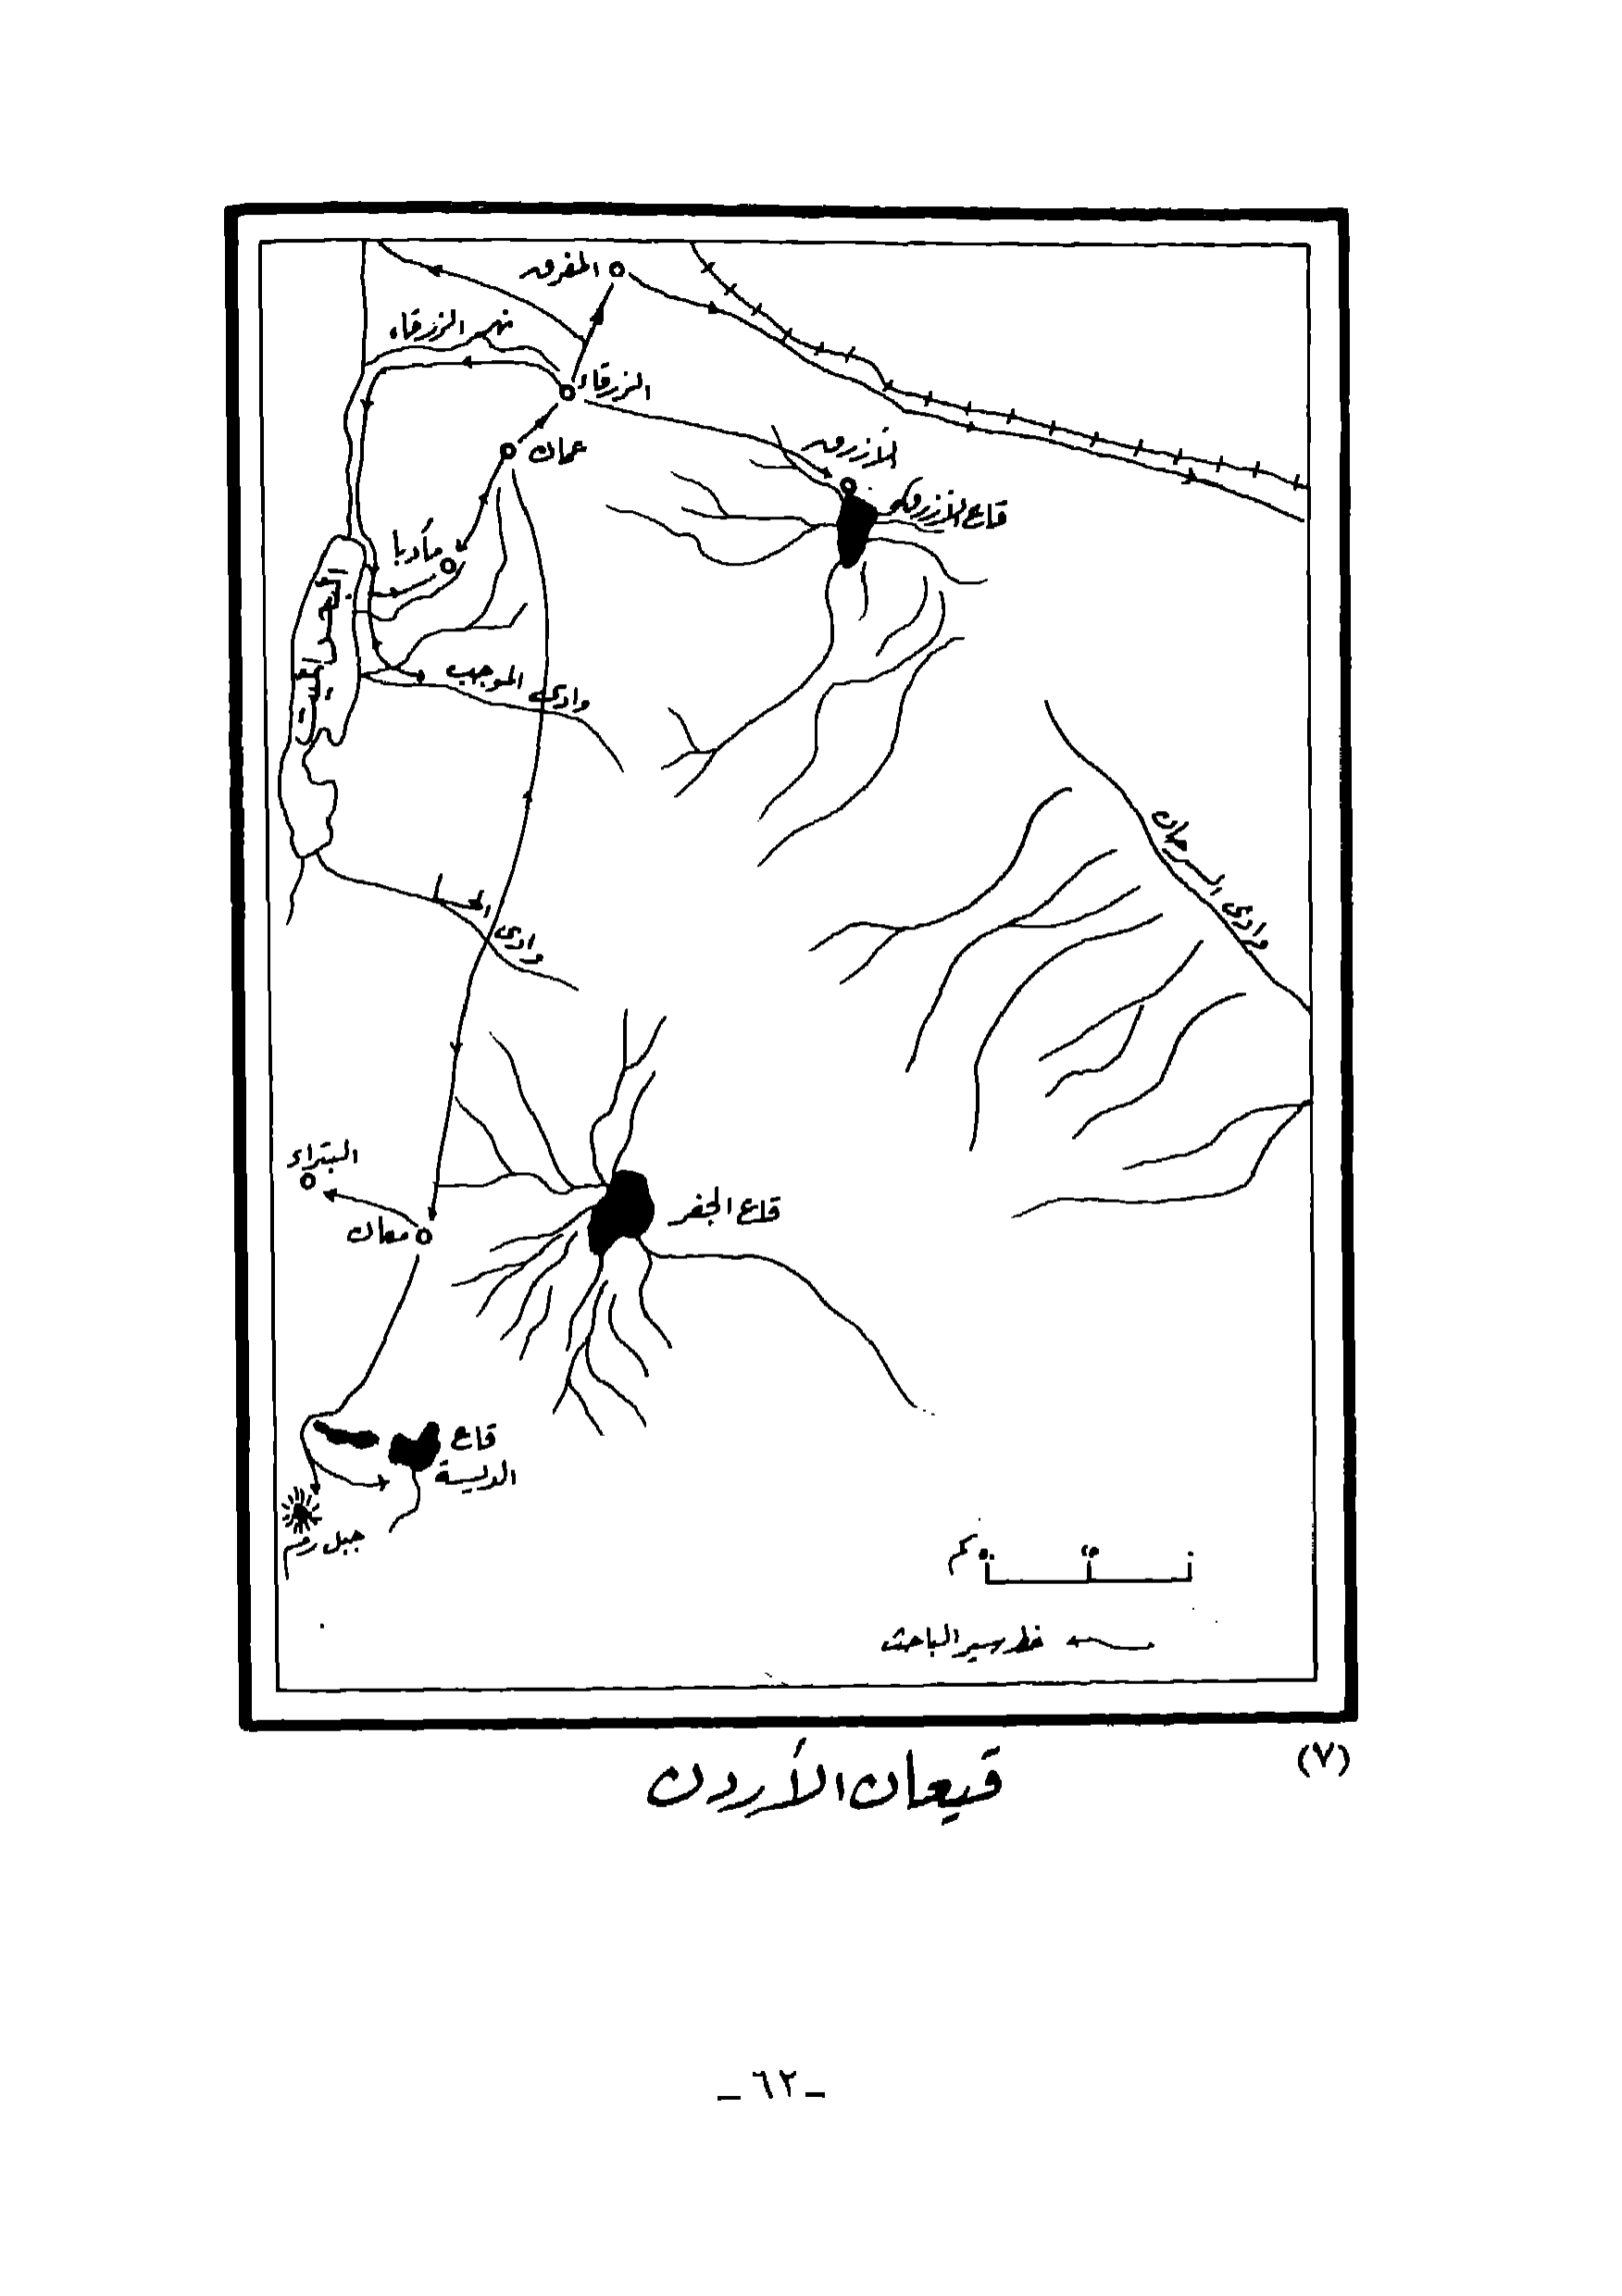 المفرق
نهر الزرقاء
الزرقاء
عمان
الأزرق
قاع الأزرق
مأدبا
البحر الميت
وادى الموجب
وادى السرحان
وادى الحسا
البتراء
معان
قاع الجفر
قاع
الديسة
جبل رم
٠ ٢٥ ٥٠ كم
خط سير الباحث
(٧)
قيعان الأردن
_ ٦٢ _